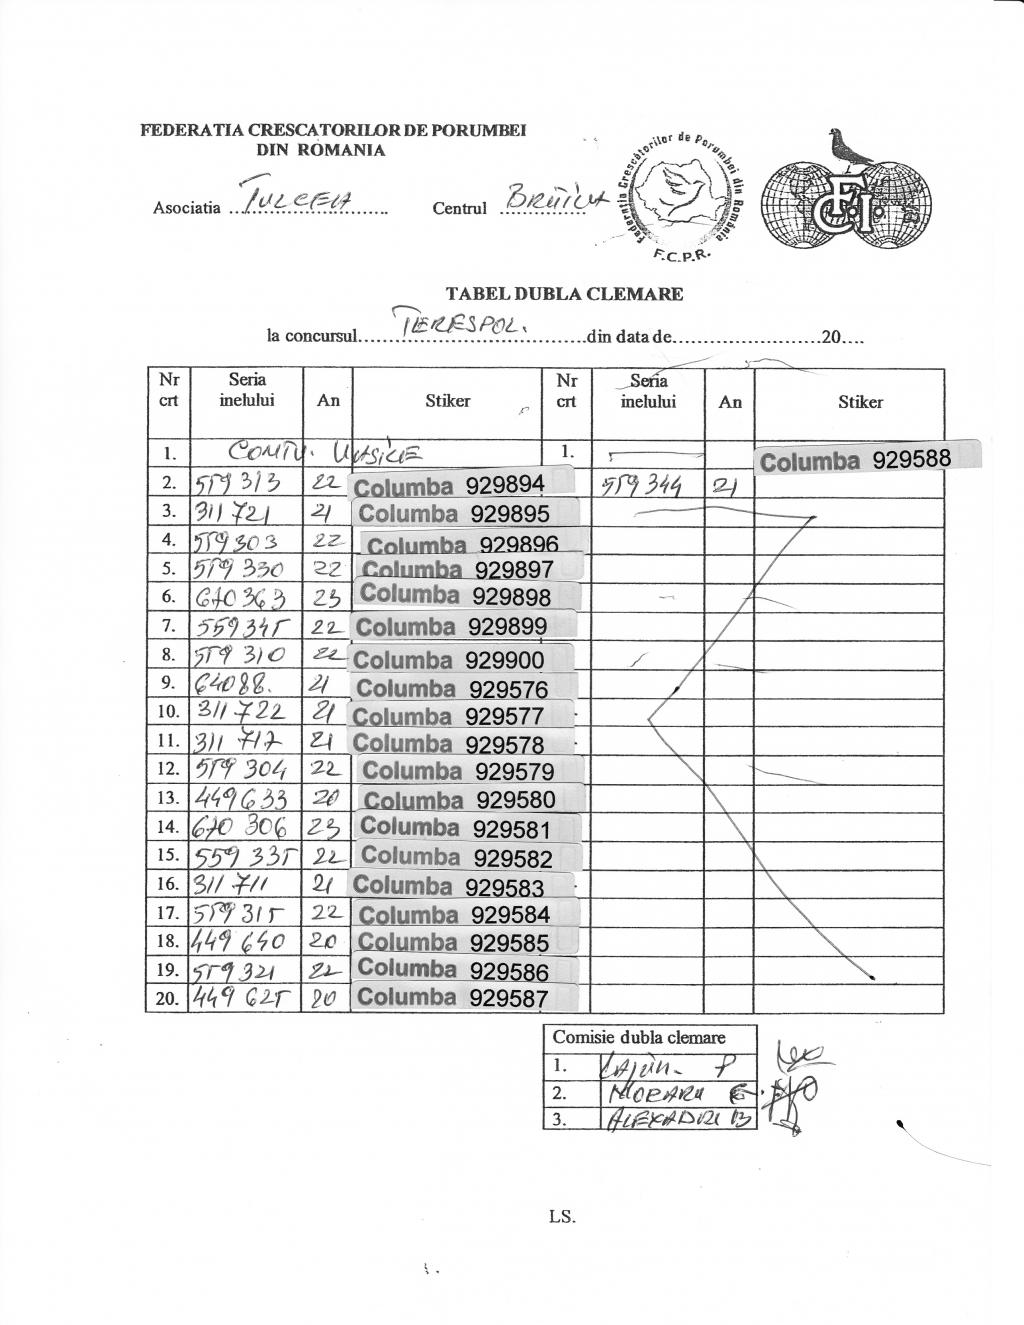 FEDERATIA CRESCATORILOR DE PORUMBEI
DIN ROMANIA
Asociatia TULCEA Centrul BRĂILA
Federatia Crescătorilor de Porumbei din România
F.C.P.R.
F.C.I.
TABEL DUBLA CLEMARE
la concursul TERESPOL. din data de 20
Nr crt Seria inelului An Stiker Nr crt Seria inelului An Stiker
1. COMTU. VASILE 1. Columba 929588
2. 559 313 22 Columba 929894 559 344 21
3. 311 721 21 Columba 929895
4. 559303 22 Columba 929896
5. 559 330 22 Columba 929897
6. 670 363 23 Columba 929898
7. 559345 22 Columba 929899
8. 559 310 22 Columba 929900
9. 64088. 21 Columba 929576
10. 311 722 21 Columba 929577
11. 311 717 21 Columba 929578
12. 559 304 22 Columba 929579
13. 449633 20 Columba 929580
14. 670 306 23 Columba 929581
15. 559 335 22 Columba 929582
16. 311 711 21 Columba 929583
17. 559 315 22 Columba 929584
18. 449 640 20 Columba 929585
19. 559 321 22 Columba 929586
20. 449 625 20 Columba 929587
Comisie dubla clemare
1. P
2. MORARU G.
3. ALEXANDRU B
LS.